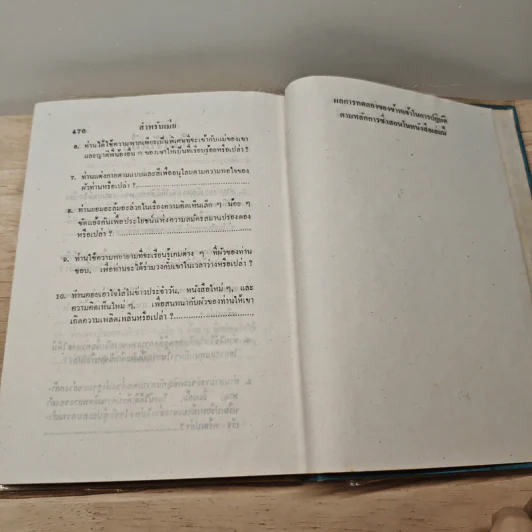 ๔๗๐
สำหรับเมีย
๖. ท่านได้ใช้ความพากเพียรเป็นพิเศษที่จะเข้ากับแม่ของเขา
และญาติพี่น้องอื่น ๆ ของเขาให้เป็นที่เรียบร้อยหรือเปล่า ?
๗. ท่านแต่งกายตามแบบและสีเพื่ออนุโลมตามความพอใจของ
ผัวท่านหรือเปล่า ?
๘. ท่านยอมอะลุ้มอล่วยในเรื่องความคิดเห็นเล็ก ๆ น้อย ๆ
ขัดแย้งกันเพื่อประโยชน์แห่งความสมัครสมานปรองดอง
หรือเปล่า ?
๙. ท่านใช้ความพยายามที่จะเรียนรู้เกมต่าง ๆ ที่ผัวของท่าน
ชอบ, เพื่อท่านจะได้ร่วมวงกับเขาในเวลาว่างหรือเปล่า ?
๑๐. ท่านคอยเอาใจใส่ในข่าวประจำวัน, หนังสือใหม่ ๆ, และ
ความคิดเห็นใหม่ ๆ, เพื่อสนทนากับผัวของท่านให้เขา
เกิดความเพลิดเพลินหรือเปล่า ?
ผลการทดลองของข้าพเจ้าในการปฏิบัติ
ตามหลักการซึ่งสอนในหนังสือเล่มนี้